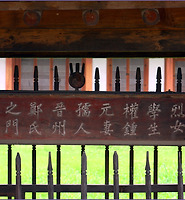 烈女
學生
權鐘
元妻
孺人
晋州
鄭氏
之門